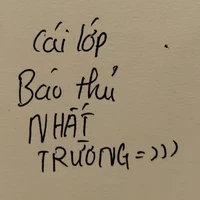 Cái lớp
Báo thủ
NHẤT
TRƯỜNG=)))